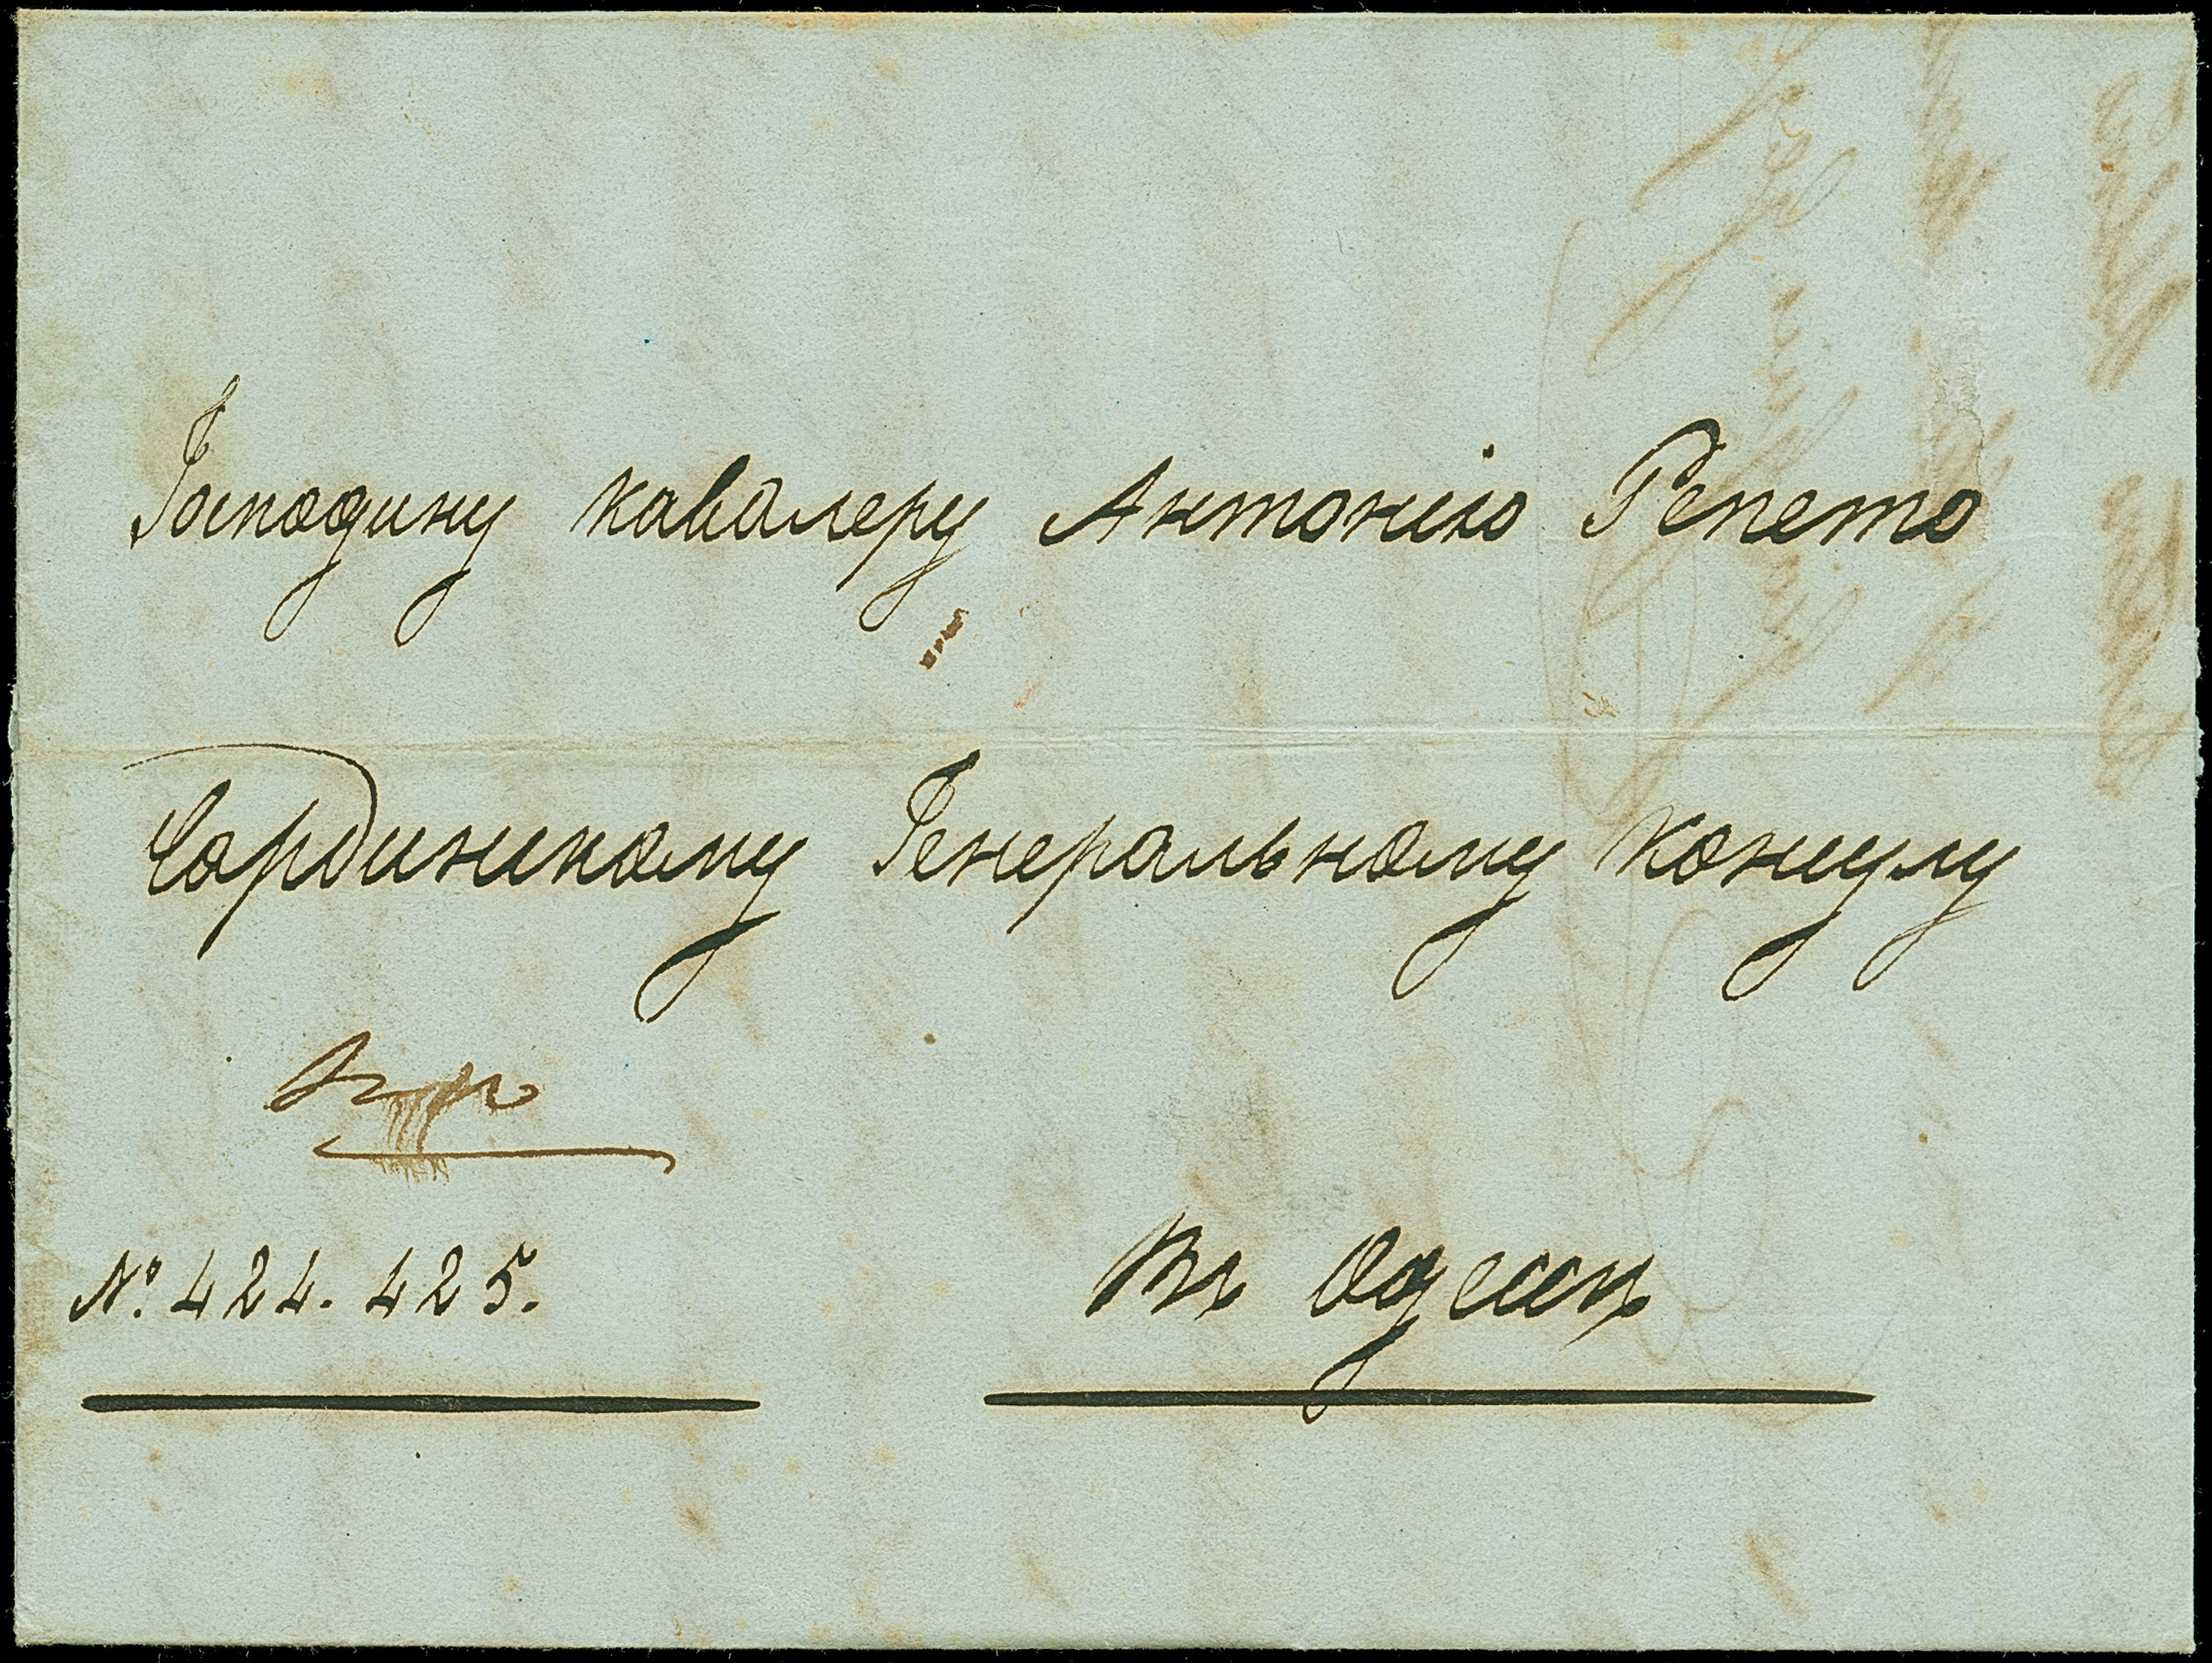 Господину кавалеру Антонію Репето
Сардинскому Генеральному Консулу
№. 424. 425.
въ Одессѣ